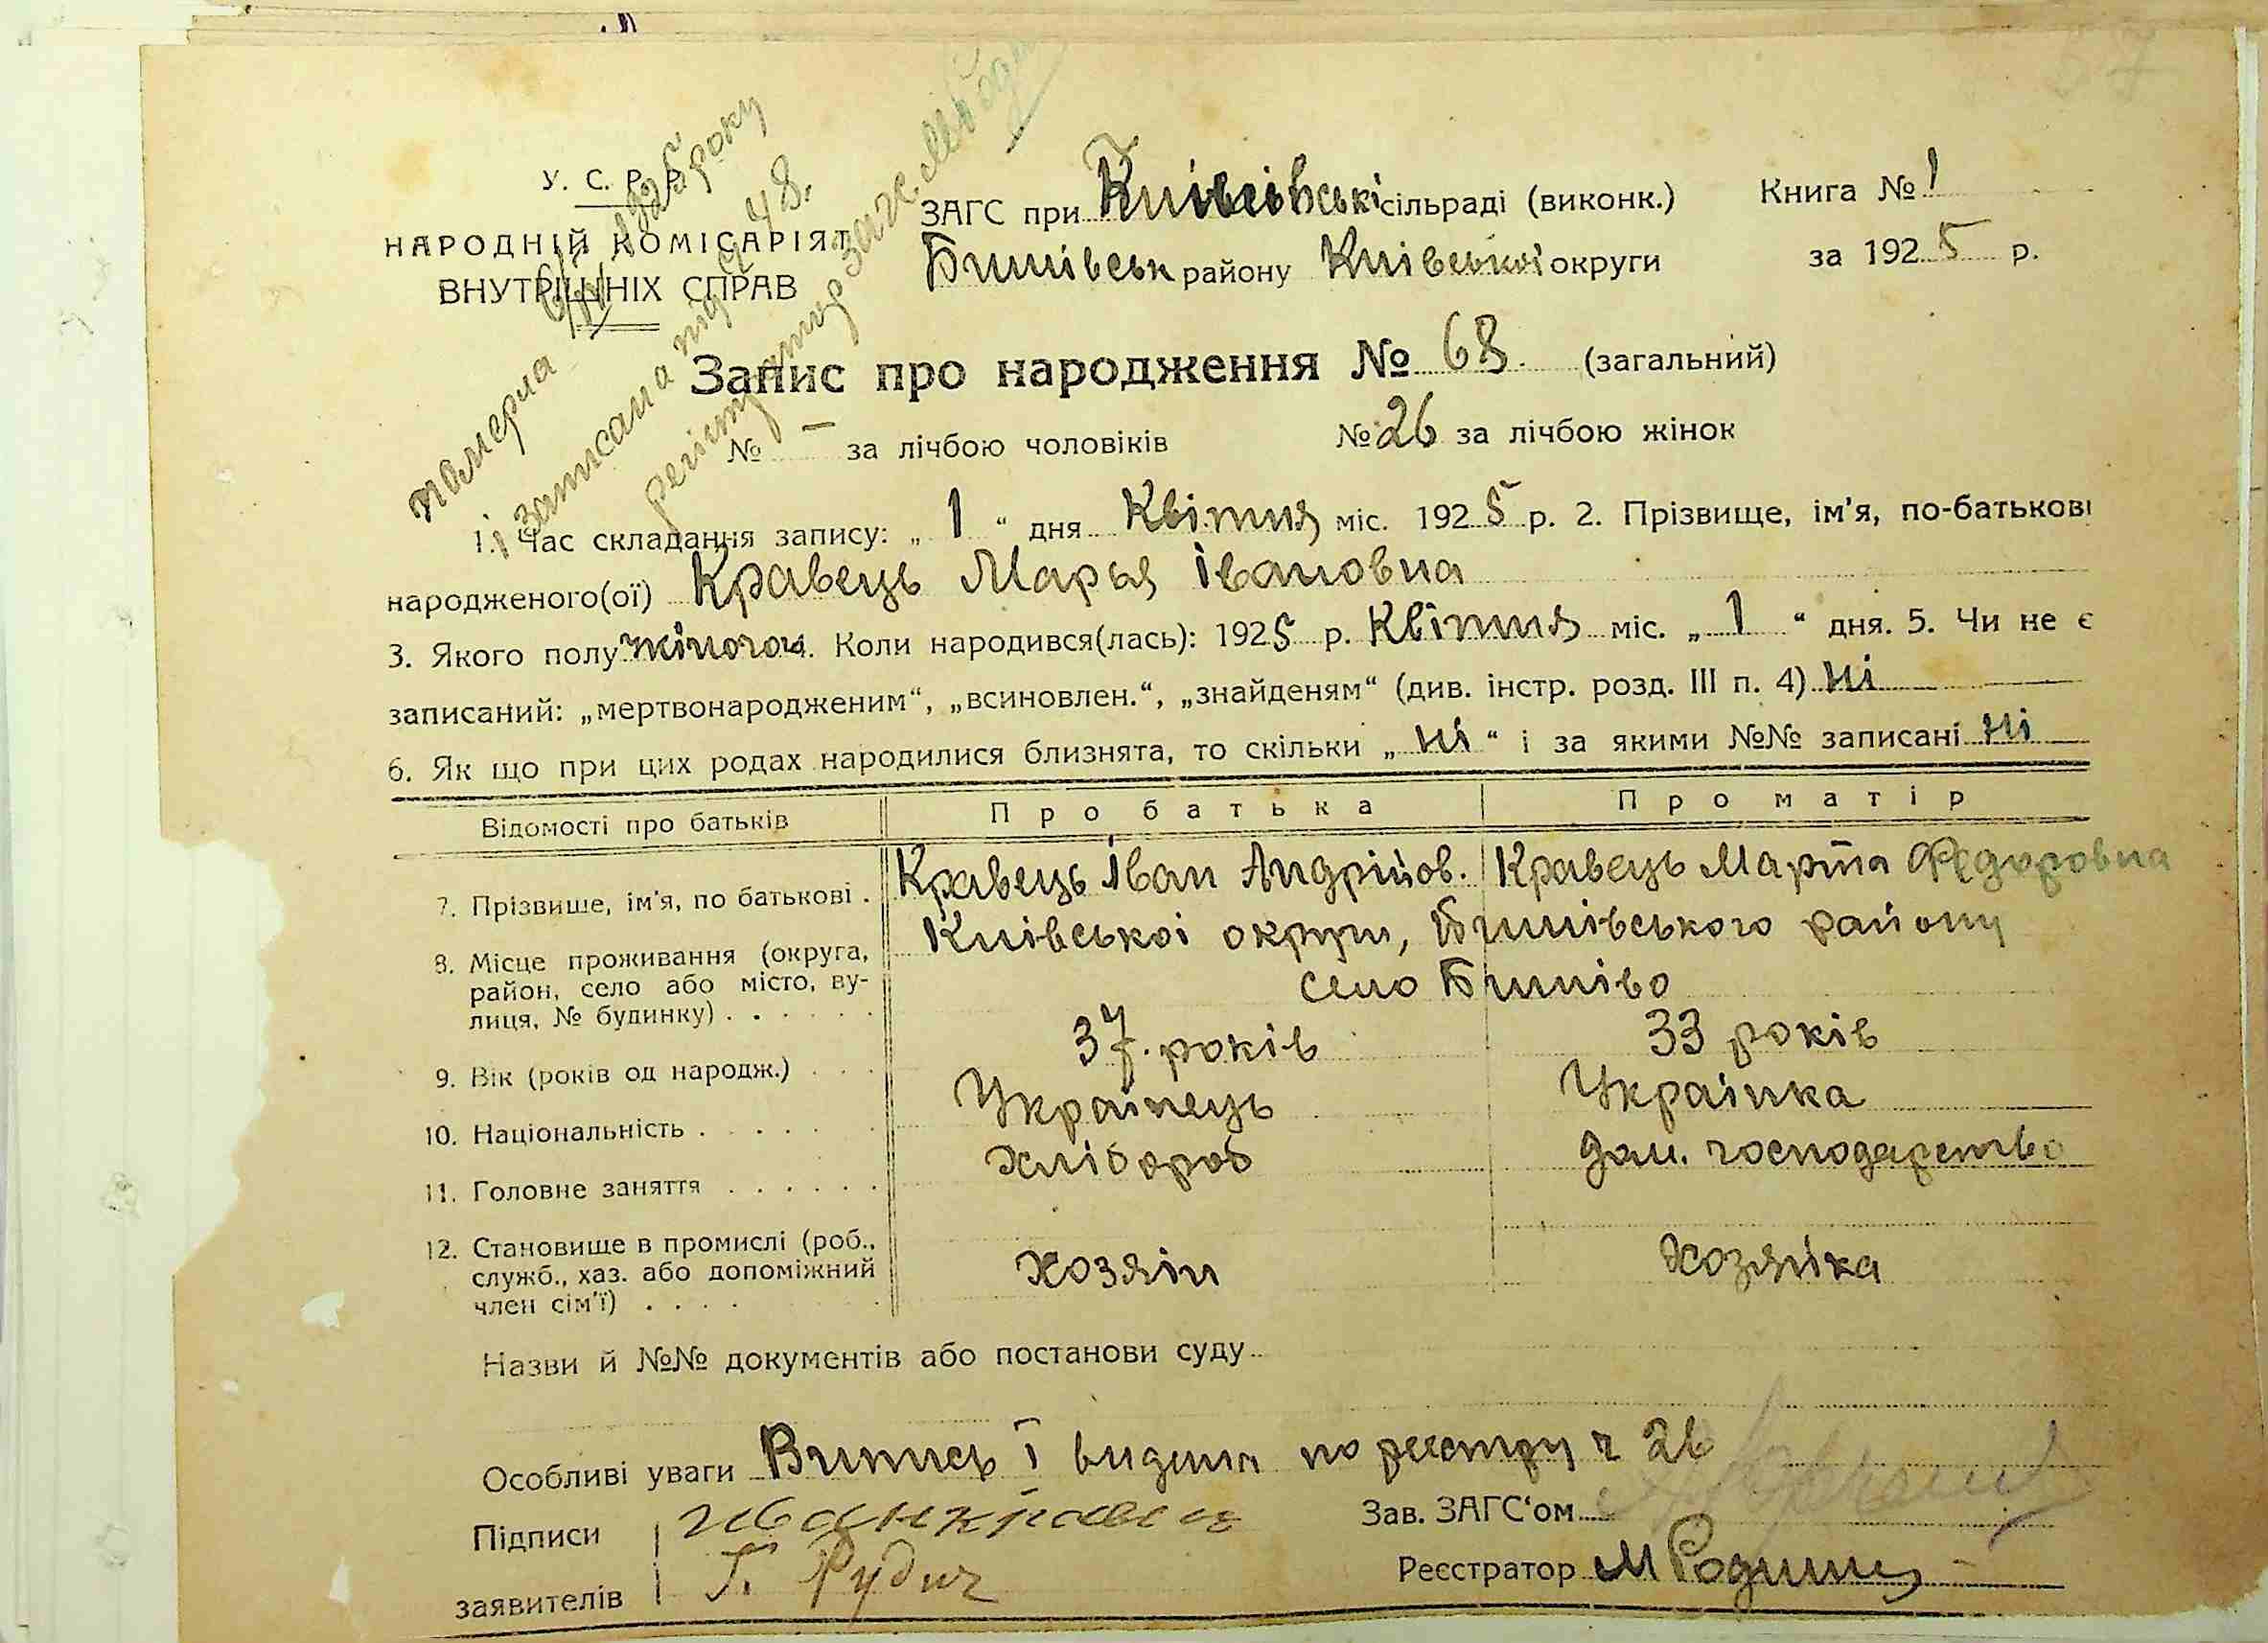 57
померла 6/IV 1925 року
і записана під ч 48.
регістратур загс. МРоди
У. С. Р. Р.
НАРОДНІЙ КОМІСАРІЯТ
ВНУТРІШНІХ СПРАВ
ЗАГС при сільраді (виконк.) Книга № 1
району Київської округи за 1925 р.
Запис про народження № 68. (загальний)
№ – за лічбою чоловіків № 26 за лічбою жінок
1. Час складання запису: „ 1 “ дня Квітня міс. 1925 р. 2. Прізвище, ім'я, по-батькові
народженого(ої) Кравець Марья Івановна
3. Якого полу жіночої. Коли народився(лась): 1925 р. Квітня міс. „ 1 “ дня. 5. Чи не є
записаний: „мертвонародженим“, „всиновлен.“, „знайденям“ (див. інстр. розд. III п. 4) Ні
6. Як що при цих родах народилися близнята, то скільки „ Ні “ і за якими №№ записані Ні
Відомості про батьків Про батька Про матір
7. Прізвище, ім'я, по батькові . Кравець Іван Андрійов. Кравець Марта Федоровна
8. Місце проживання (округа, район, село або місто, ву-
лиця, № будинку) . . . . . .
Київської округи, району
село
9. Вік (років од народж.) . . . 37. років 33 років
10. Національність . . . . . . Українець Українка
11. Головне заняття . . . . . . Хлібороб дом. господарство
12. Становище в промислі (роб.,
служб., хаз. або допоміжний
член сім'ї) . . . .
хозяін хозяйка
Назви й №№ документів або постанови суду
Особливі уваги Витись і видана по реестру ч 26
Підписи иван кравец Зав. ЗАГС'ом
заявителів Г. Рудич Реєстратор М Родин